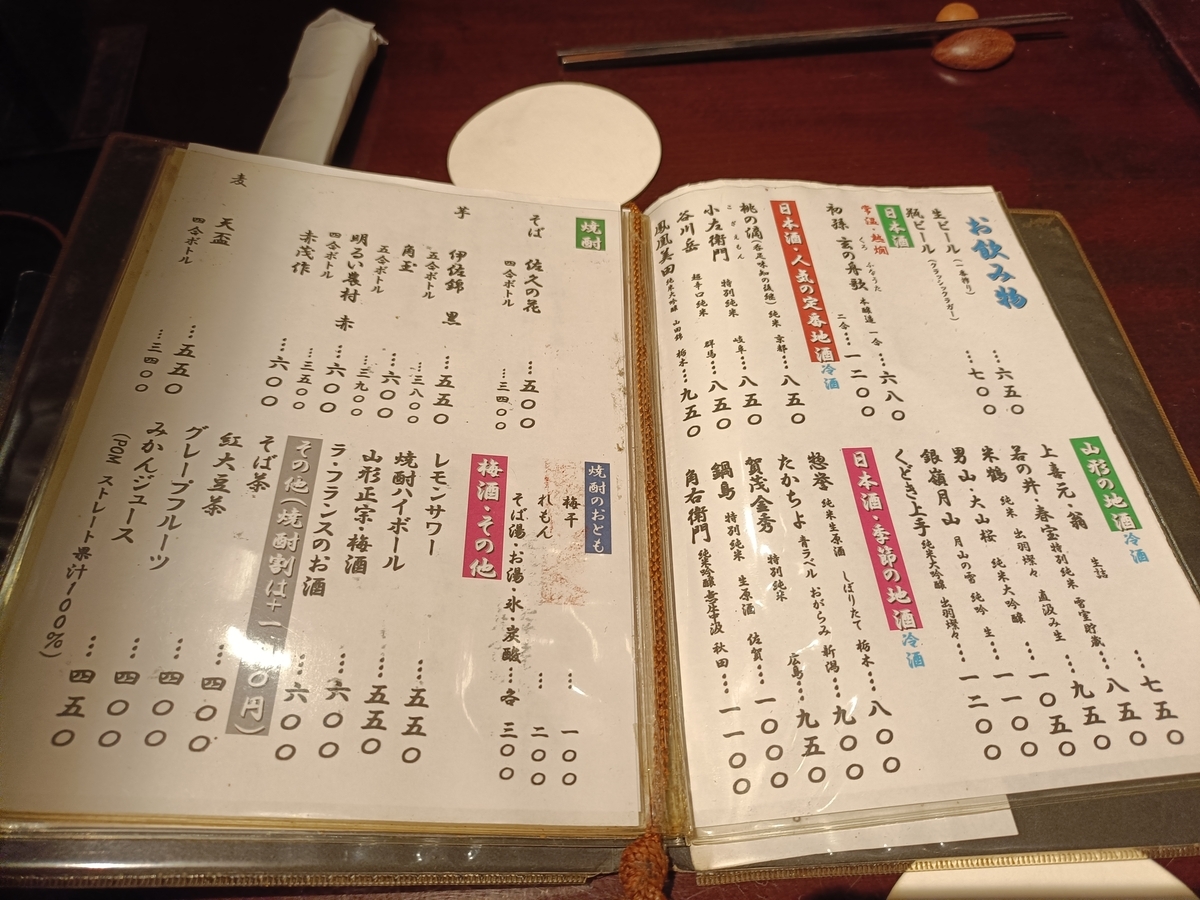 お飲み物
生ビール（一番搾り）…六五〇
瓶ビール（クラシックラガー）…七〇〇
日本酒
常温・熱燗
初孫 玄の舟歌 本醸造 一合…六八〇
くろ ふなうた
二合…一二〇〇
日本酒・人気の定番地酒 冷酒
桃の滴 純米 京都…八五〇
小左衛門 特別純米 岐阜…八五〇
こざえもん
谷川岳 超辛口純米 群馬…八五〇
鳳凰美田 純米大吟醸 山田錦 栃木…九五〇
山形の地酒 冷酒
上喜元・翁 生詰…七五〇
若の井・春宝 特別純米 雪室貯蔵…八五〇
米鶴 純米 出羽燦々 直汲み生…九五〇
男山・大山桜 純米大吟醸…一〇五〇
銀嶺月山 月山の雪 純吟 生…一一〇〇
くどき上手 純米大吟醸 出羽燦々…一二〇〇
日本酒・季節の地酒 冷酒
惣誉 純米生原酒 しぼりたて 栃木…八〇〇
たかちよ 青ラベル おがらみ 新潟…九〇〇
賀茂金秀 特別純米 広島…九五〇
鍋島 特別純米 生原酒 佐賀…一〇〇〇
角右衛門 純米吟醸 秋田…一一〇〇
焼酎
そば 佐久の花…五五〇
四合ボトル…三四〇〇
芋 伊佐錦 黒…五五〇
五合ボトル…三八〇〇
角玉…六〇〇
五合ボトル…三九〇〇
明るい農村 赤…六〇〇
四合ボトル…三五〇〇
赤茂作…六〇〇
麦 天盃…五五〇
四合ボトル…三四〇〇
焼酎のおとも
梅干…一〇〇
れもん…二〇〇
そば湯・お湯・氷・炭酸…各三〇〇
梅酒・その他
レモンサワー…五五〇
焼酎ハイボール…五五〇
山形正宗・梅酒…六〇〇
ラ・フランスのお酒…六〇〇
その他（焼酎割は＋一〇〇円）
そば茶…四〇〇
紅大豆茶…四〇〇
グレープフルーツ…四〇〇
みかんジュース…四五〇
（POM ストレート果汁一〇〇％）